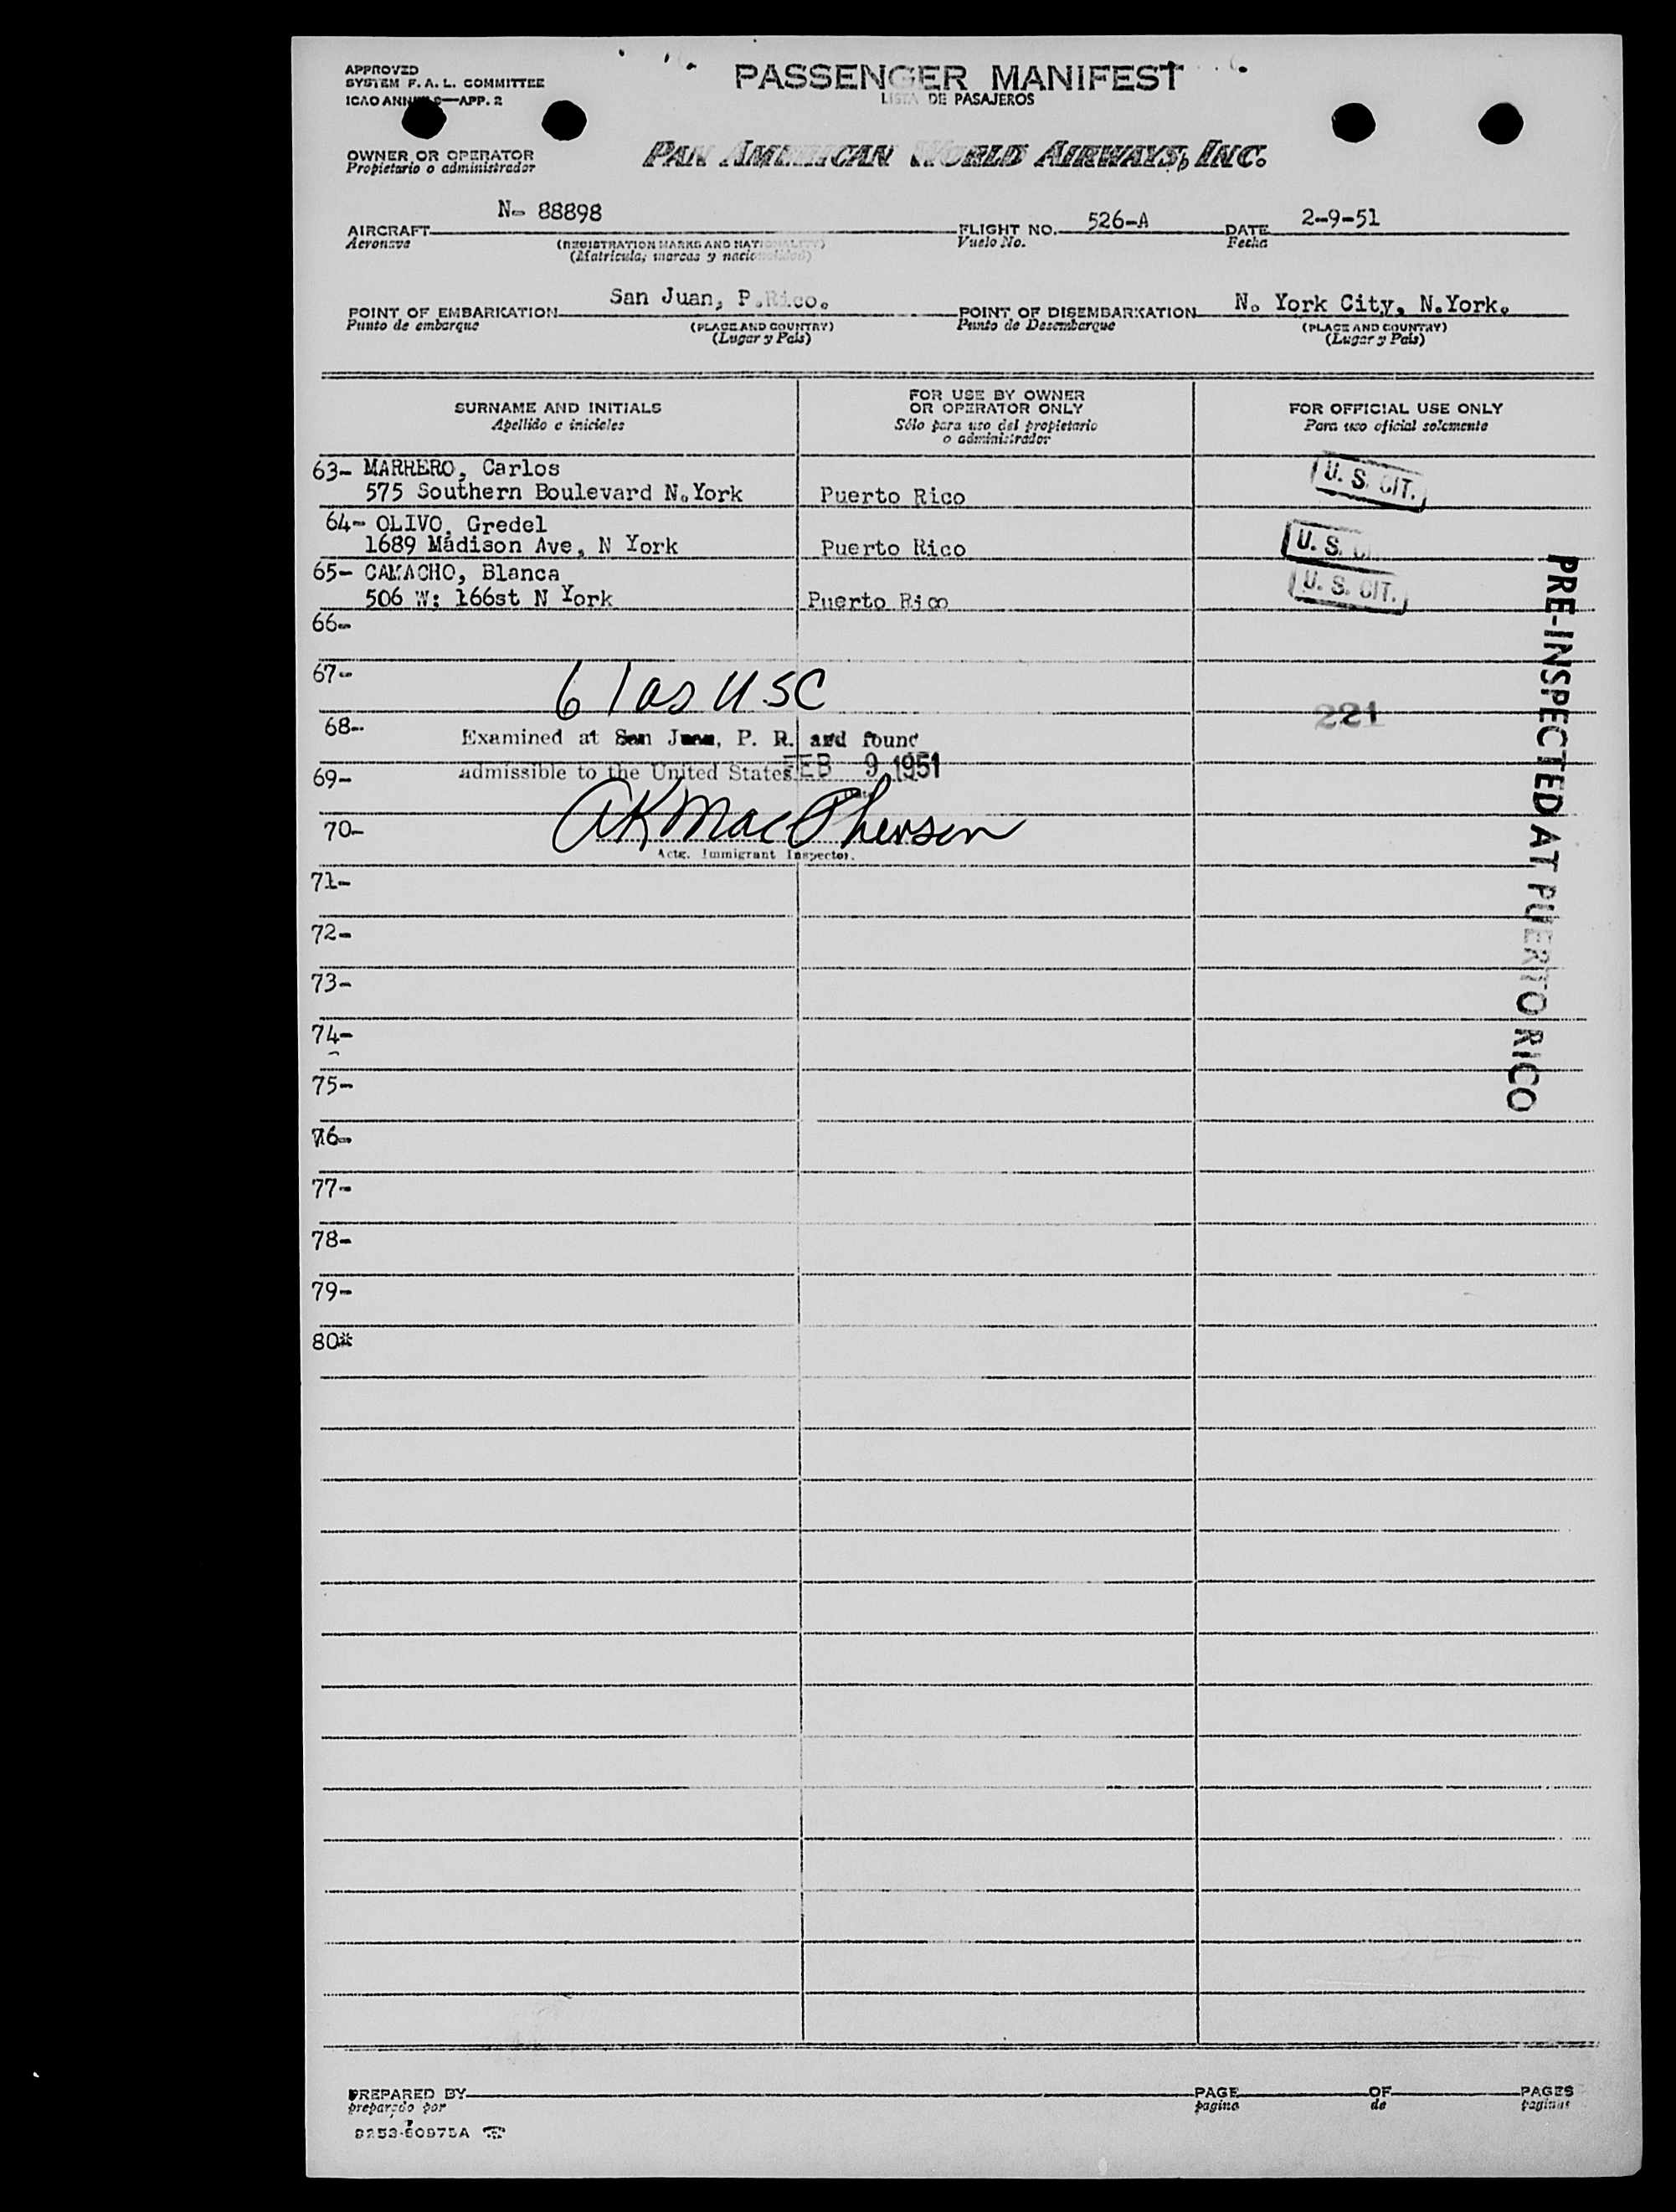 APPROVED
SYSTEM F. A. L. COMMITTEE
ICAO ANNEX 9—APP. 2
PASSENGER MANIFEST
LISTA DE PASAJEROS
OWNER OR OPERATOR
Propietario o administrador
PAN AMERICAN WORLD AIRWAYS, INC.
AIRCRAFT N- 88898 FLIGHT NO. 526-A DATE 2-9-51
Aeronave (REGISTRATION MARKS AND NATIONALITY) Vuelo No. Fecha
(Matrícula, marcas y nacionalidad)
POINT OF EMBARKATION San Juan, P.Rico. POINT OF DISEMBARKATION N. York City, N.York.
Punto de embarque (PLACE AND COUNTRY) Punto de Desembarque (PLACE AND COUNTRY)
(Lugar y País) (Lugar y País)
SURNAME AND INITIALS
Apellido e iniciales
FOR USE BY OWNER
OR OPERATOR ONLY
Sólo para uso del propietario
o administrador
FOR OFFICIAL USE ONLY
Para uso oficial solamente
63- MARRERO, Carlos
575 Southern Boulevard N.York Puerto Rico U. S. CIT.
64- OLIVO, Gredel
1689 Madison Ave, N York Puerto Rico U. S.
65- CAMACHO, Blanca
506 W: 166st N York Puerto Rico U. S. CIT.
66-
67-
61 as USC
68-
221
Examined at San Juan, P. R. and found
69-
admissible to the United States FEB 9 1951
Date
70-
AK MacPherson
Actg. Immigrant Inspector.
PRE-INSPECTED AT PUERTO RICO
71-
72-
73-
74-
75-
76-
77-
78-
79-
80*
PREPARED BY PAGE OF PAGES
preparado por pagina de paginas
9253-60975A